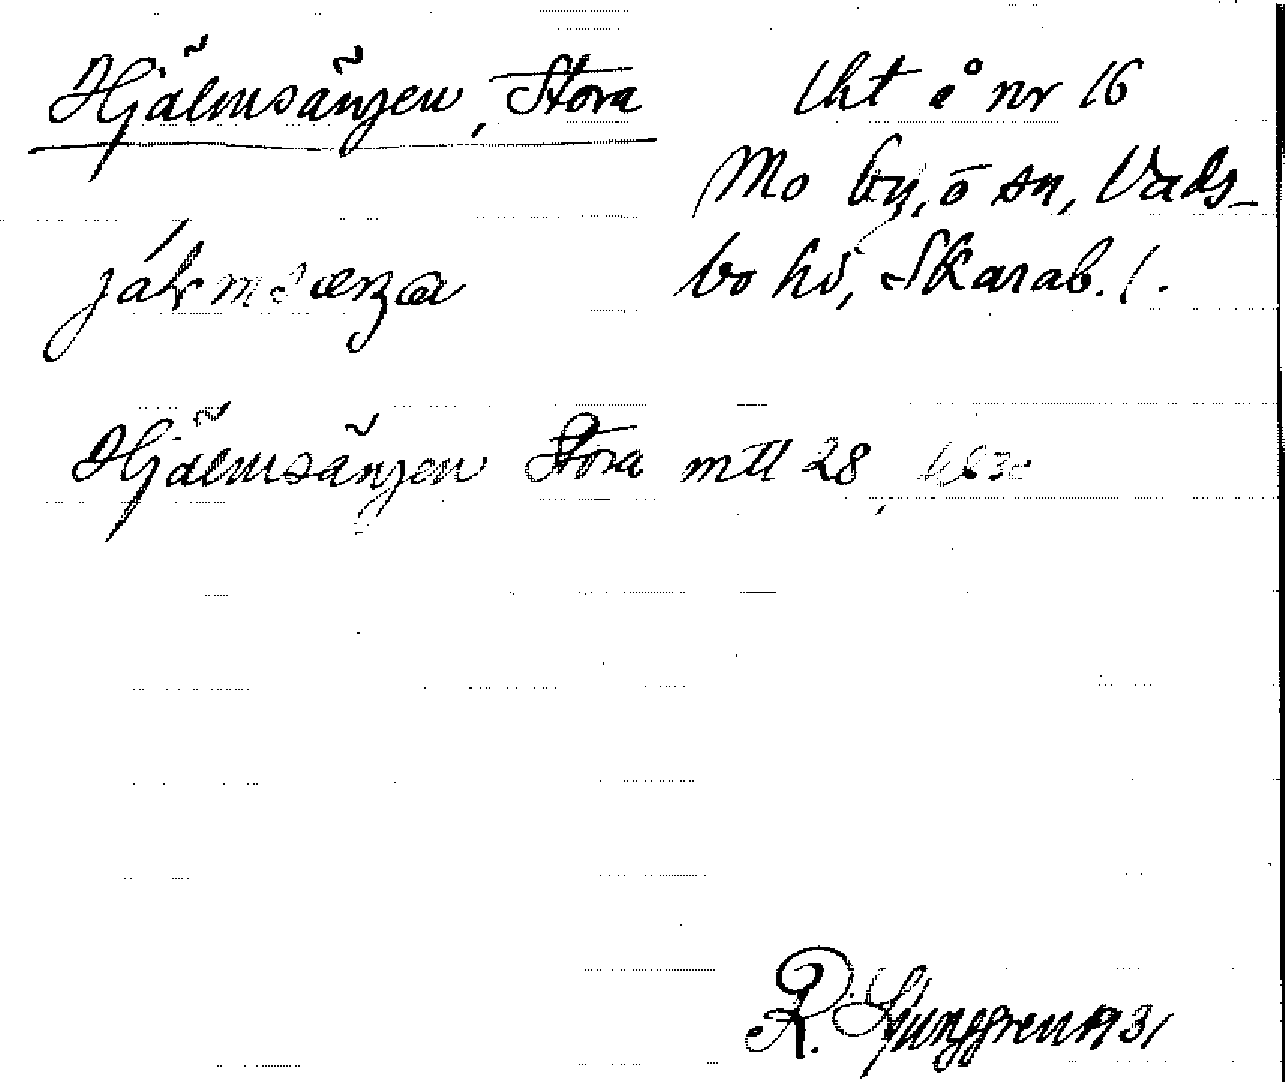 Hjälmsängen, Stora
lht å nr 16
Mo by, ö sn, Vads-
bo hd, Skarab. l.
jálmsænza
Hjälmsängen Stora mtl 28,
R. Ljunggren 1931